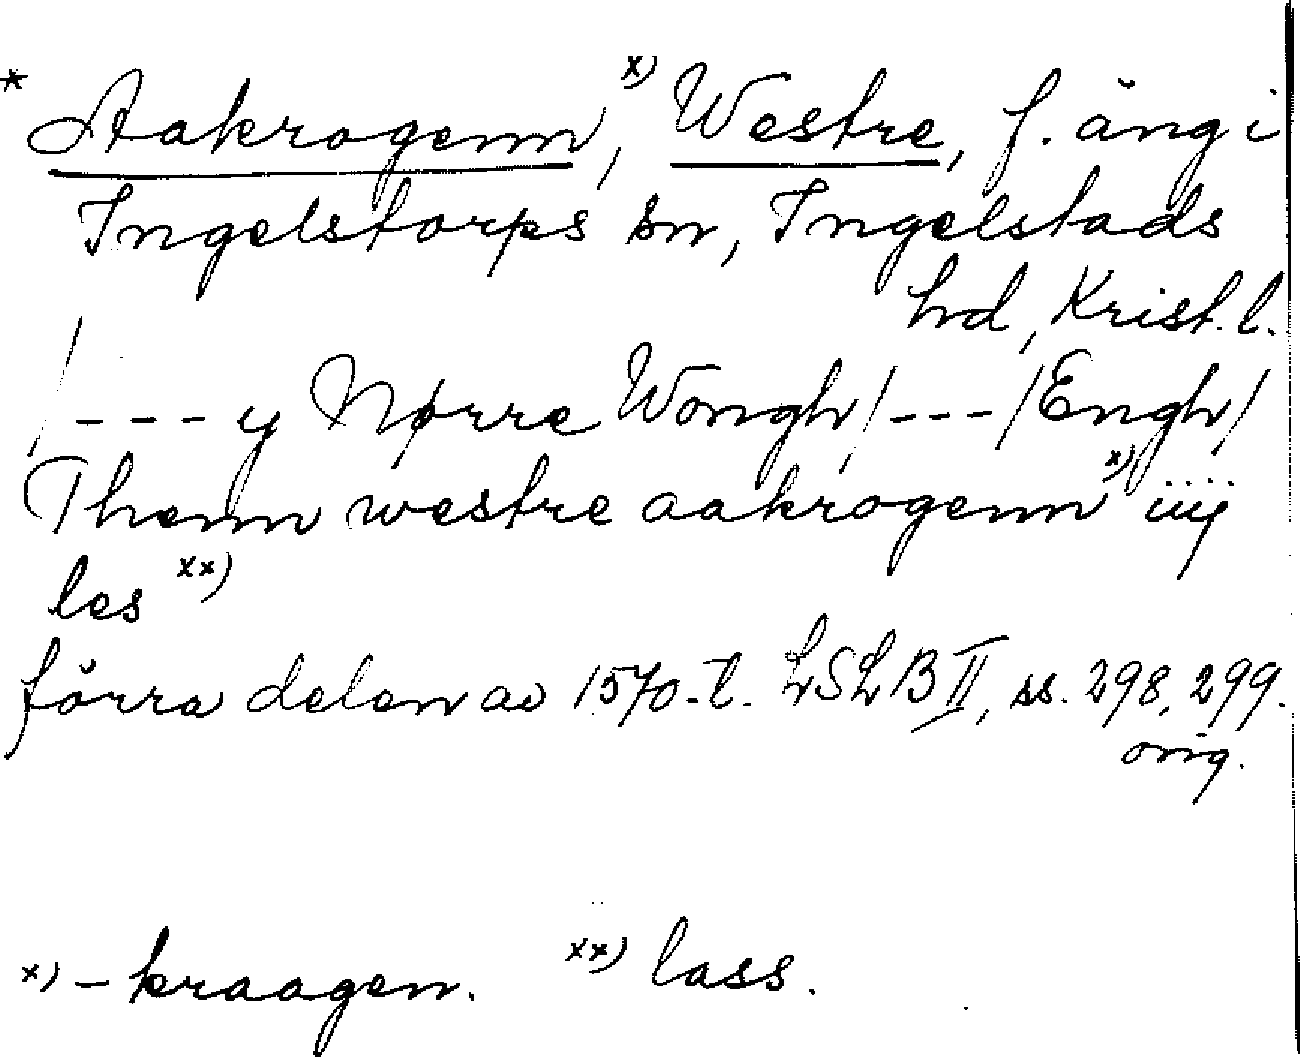 * Aakrogenn, x) Westre, f. äng i
Ingelstorps sn, Ingelstads
hd, Krist. l.
/ - - - y Nørre Wongh / - - - / Engh /
Thenn westre aakrogenn x) iiij
les xx)
förra delen av 1570-t. LSLB II, ss. 298, 299.
orig.
x) - kraagen. xx) lass.